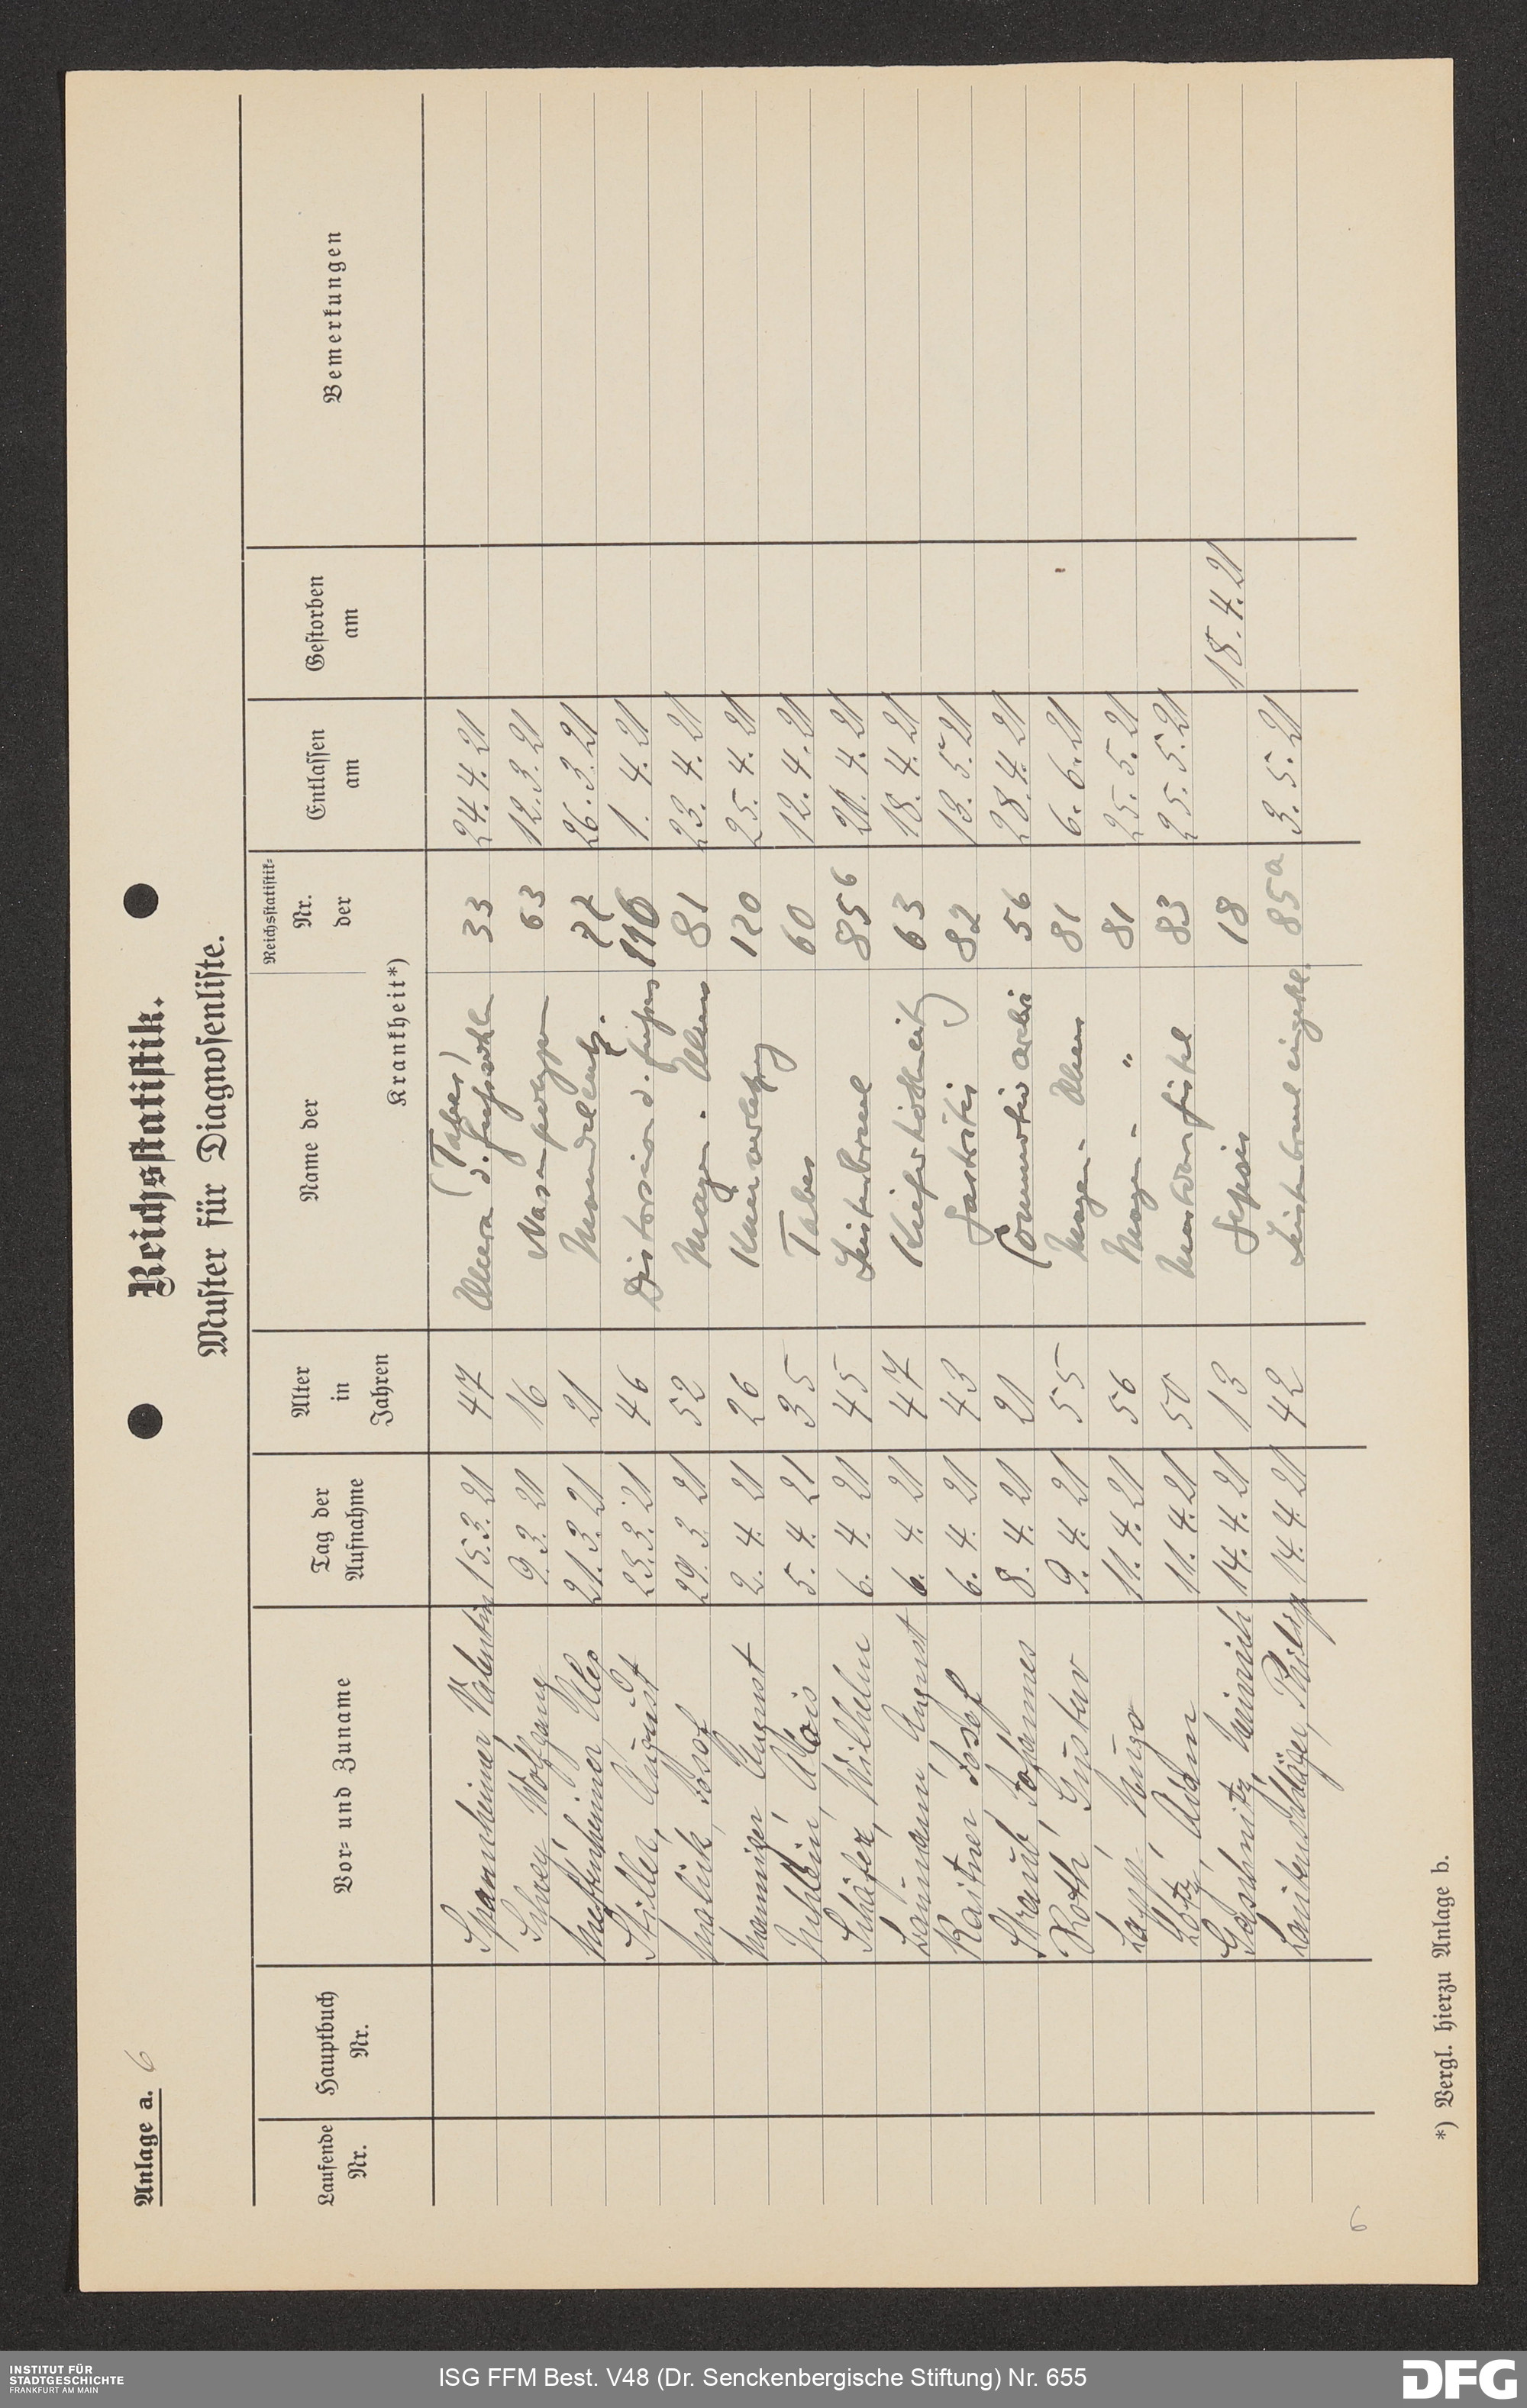 Anlage a. 6
Reichsstatistik.
Muster für Diagnosenliste.
Laufende Nr. Hauptbuch Nr. Vor- und Zuname Tag der Aufnahme Alter in Jahren Name der Krankheit*) Reichsstatistik- Nr. der Entlassen am Gestorben am Bemerkungen
Spannheimer, Valentin 15.3.21 47 Ulcera d. Fußsohlen (Tabes) 33 24.4.21
Wolfgang 9.3.21 16 Nasenpolypen 63 12.3.21
21.3.21 21 77 26.3.21
Stiller, August 23.3.21 46 Distorsion d. Fußes 116 1.4.21
Malik, Josef 29.3.21 52 Magen-Ulcus 81 23.4.21
August 2.4.21 26 120 25.4.21
Alois 5.4.21 35 Tabes 60 12.4.21
Schäfer, Wilhelm 6.4.21 45 Leistenbruch 85b 21.4.21
Laumann, August 6.4.21 47 63 18.4.21
Kastner Josef 6.4.21 43 Gastritis 82 13.5.21
Straub, Johannes 8.4.21 21 56 28.4.21
Roth, Gustav 9.4.21 55 Magen-Ulcus 81 6.6.21
Hugo 11.4.21 56 Magen- " 81 25.5.21
Lotz, Adam 11.4.21 50 Mastdarmfistel 83 25.5.21
Heinrich 14.4.21 13 Sepsis 18 18.4.21
Lautenschläger, Philipp 14.4.21 42 Leistenbruch eingekl. 85a 3.5.21
*) Vergl. hierzu Anlage b.
6
INSTITUT FÜR
STADTGESCHICHTE
FRANKFURT AM MAIN
ISG FFM Best. V48 (Dr. Senckenbergische Stiftung) Nr. 655
DFG